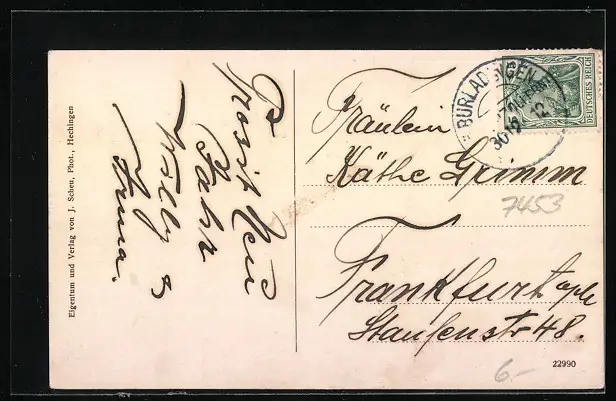 Prosit Neu
Jahr
Willy &
Irma.
Eigentum und Verlag von J. Scheu, Phot., Hechingen
BURLADINGEN
30 12 12
DEUTSCHES REICH
Fräulein
Käthe Grimm
7453
Frankfurt a/M
Staufenstr 48.
6-
22990